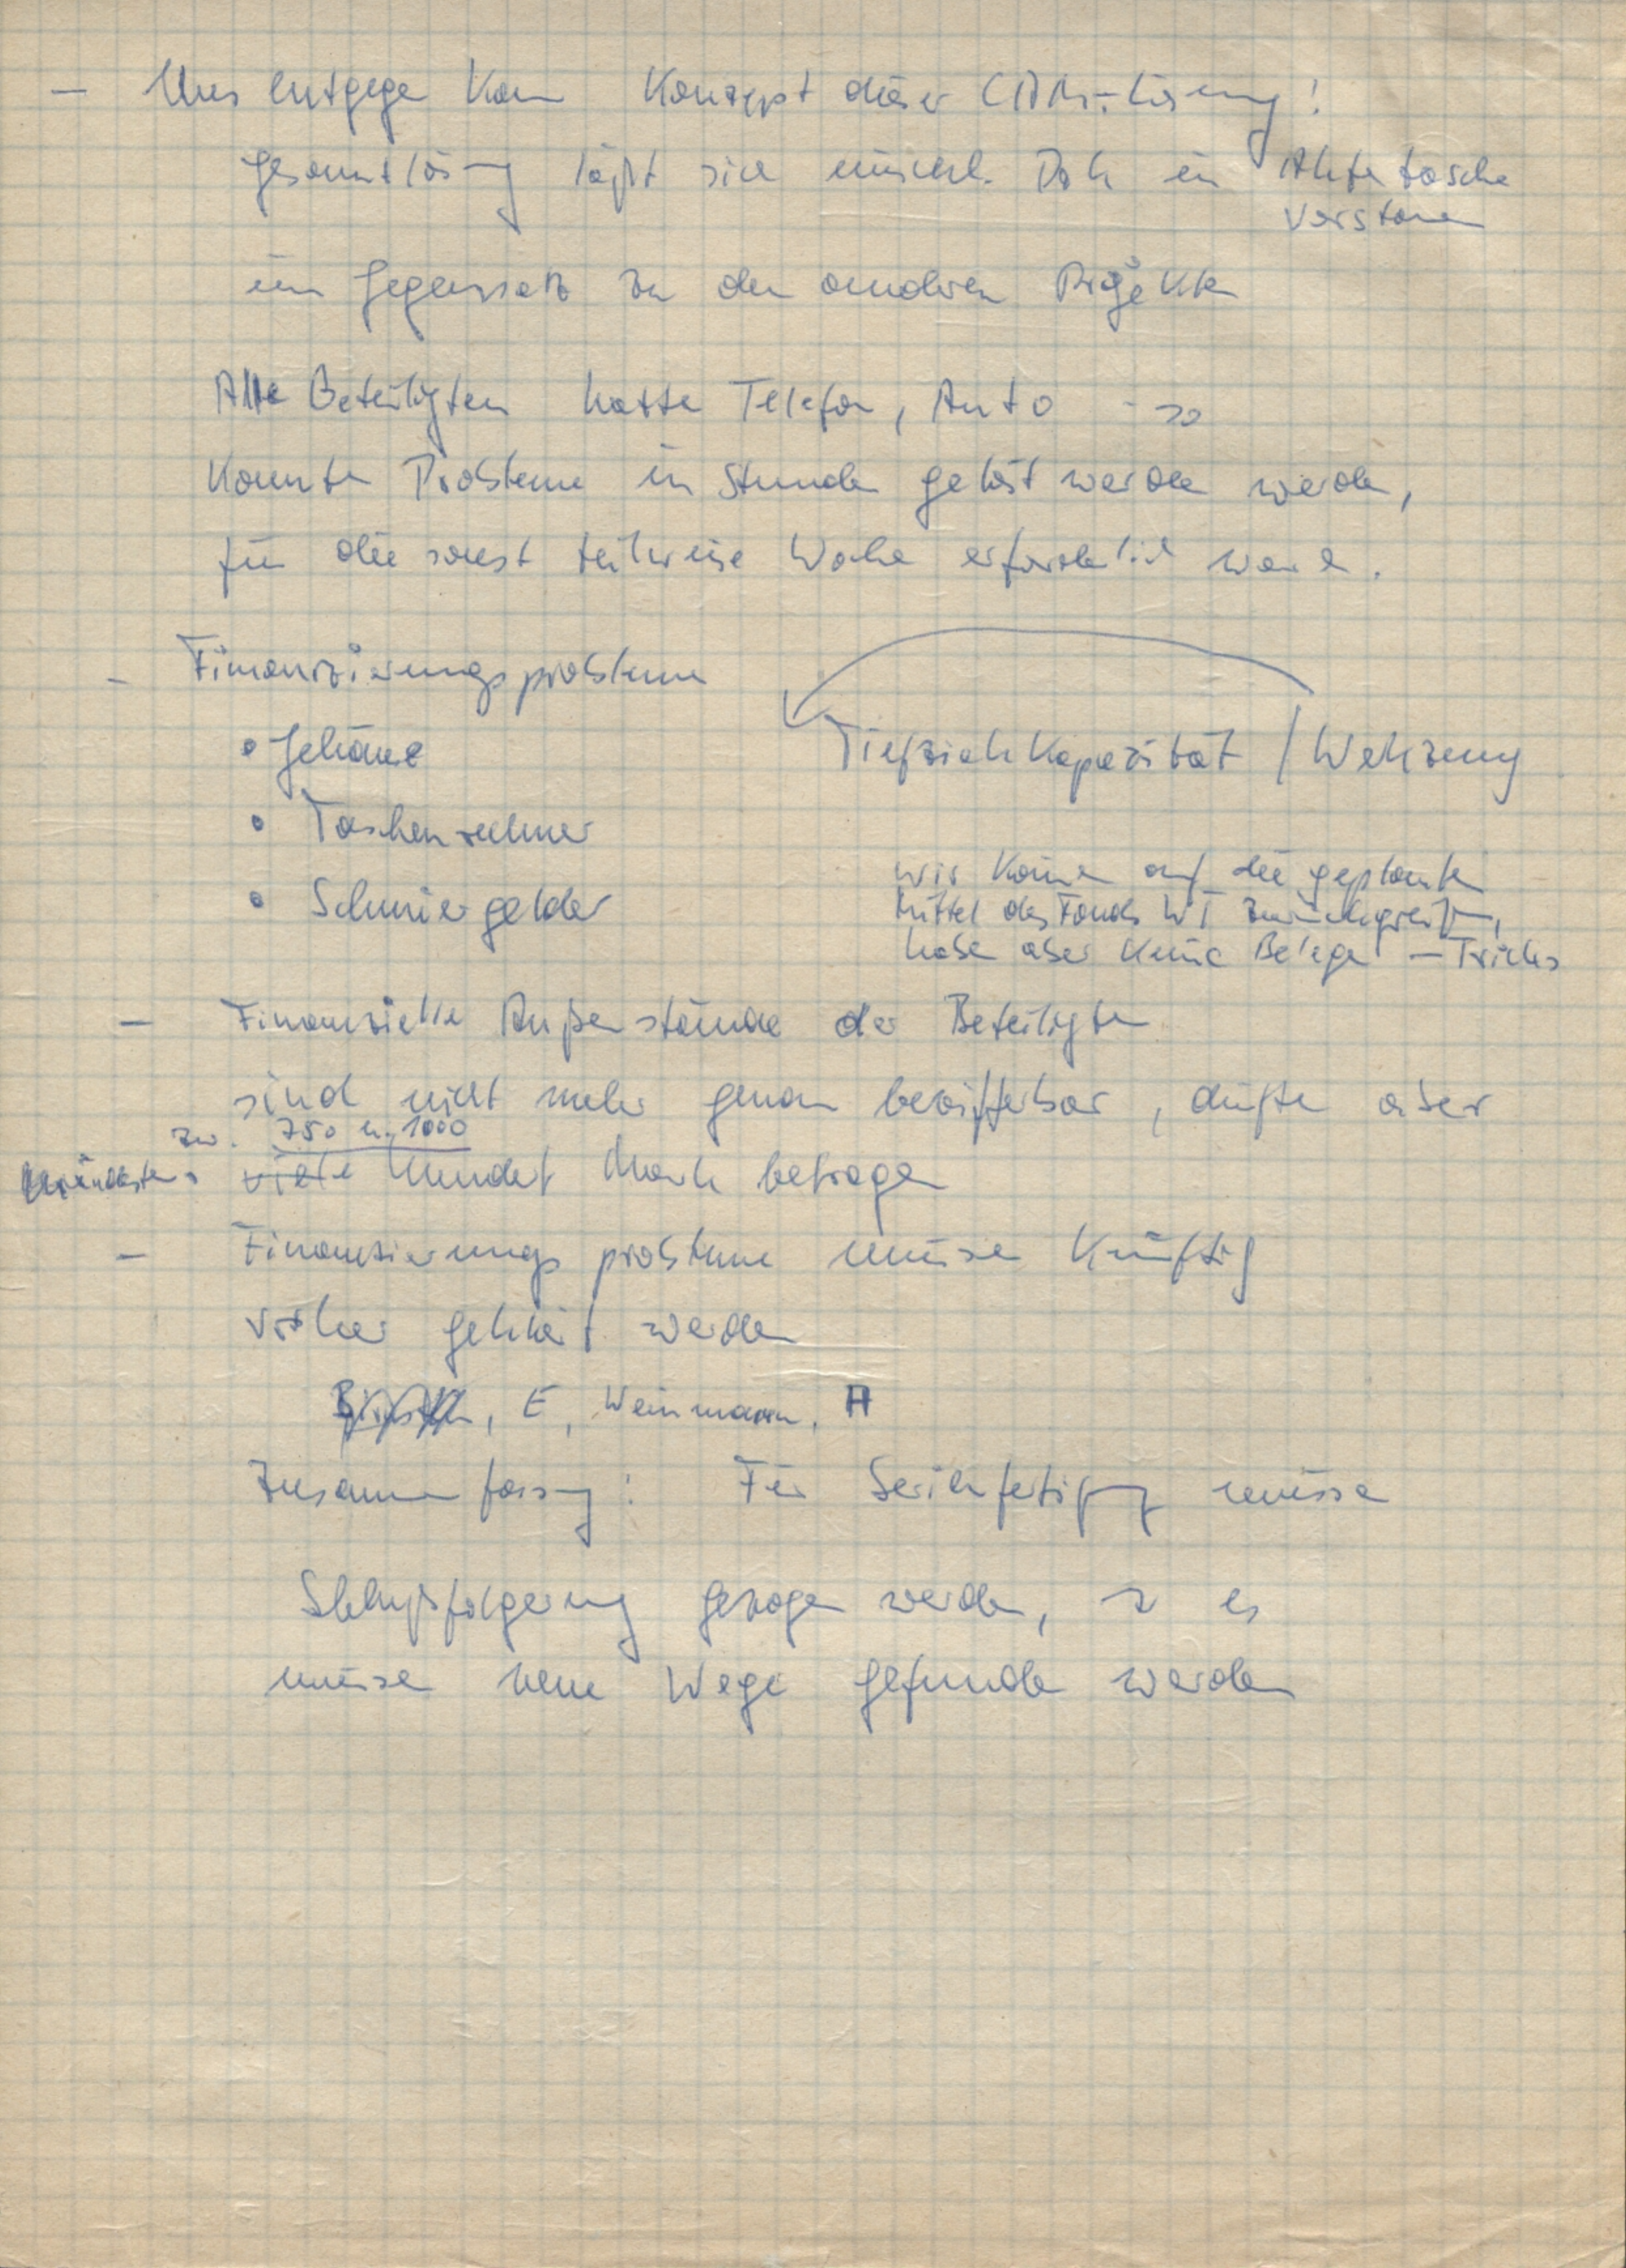 – Uns entgegen kam Konzept dieser CAM-Lösung!
Gesamtlösung läßt sich einschl. Dok in Aktentasche
verstauen
im Gegensatz zu den anderen Projekten
Alle Beteiligten hatten Telefon, Auto - so
konnten Probleme in Stunden gelöst werden werden,
für die sonst teilweise Wochen erforderlich waren.
– Finanzierungsprobleme
• Gehäuse Tiefziehkapazität / Werkzeug
• Taschenrechner
• Schmiergelder
wir können auf die geplanten
Mittel des Fonds WT zurückgreifen,
haben aber keine Belege – Tricks
– Finanzielle Außenstände der Beteiligten
sind nicht mehr genau bezifferbar, dürften aber
zw. 750 u. 1000
mindestens viele Hundert Mark betragen
– Finanzierungsprobleme müssen künftig
vorher geklärt werden
, E, Weinmann, H
Zusammenfassung: Für Serienfertigung müssen
Schlußfolgerung gezogen werden, so es
müssen neue Wege gefunden werden